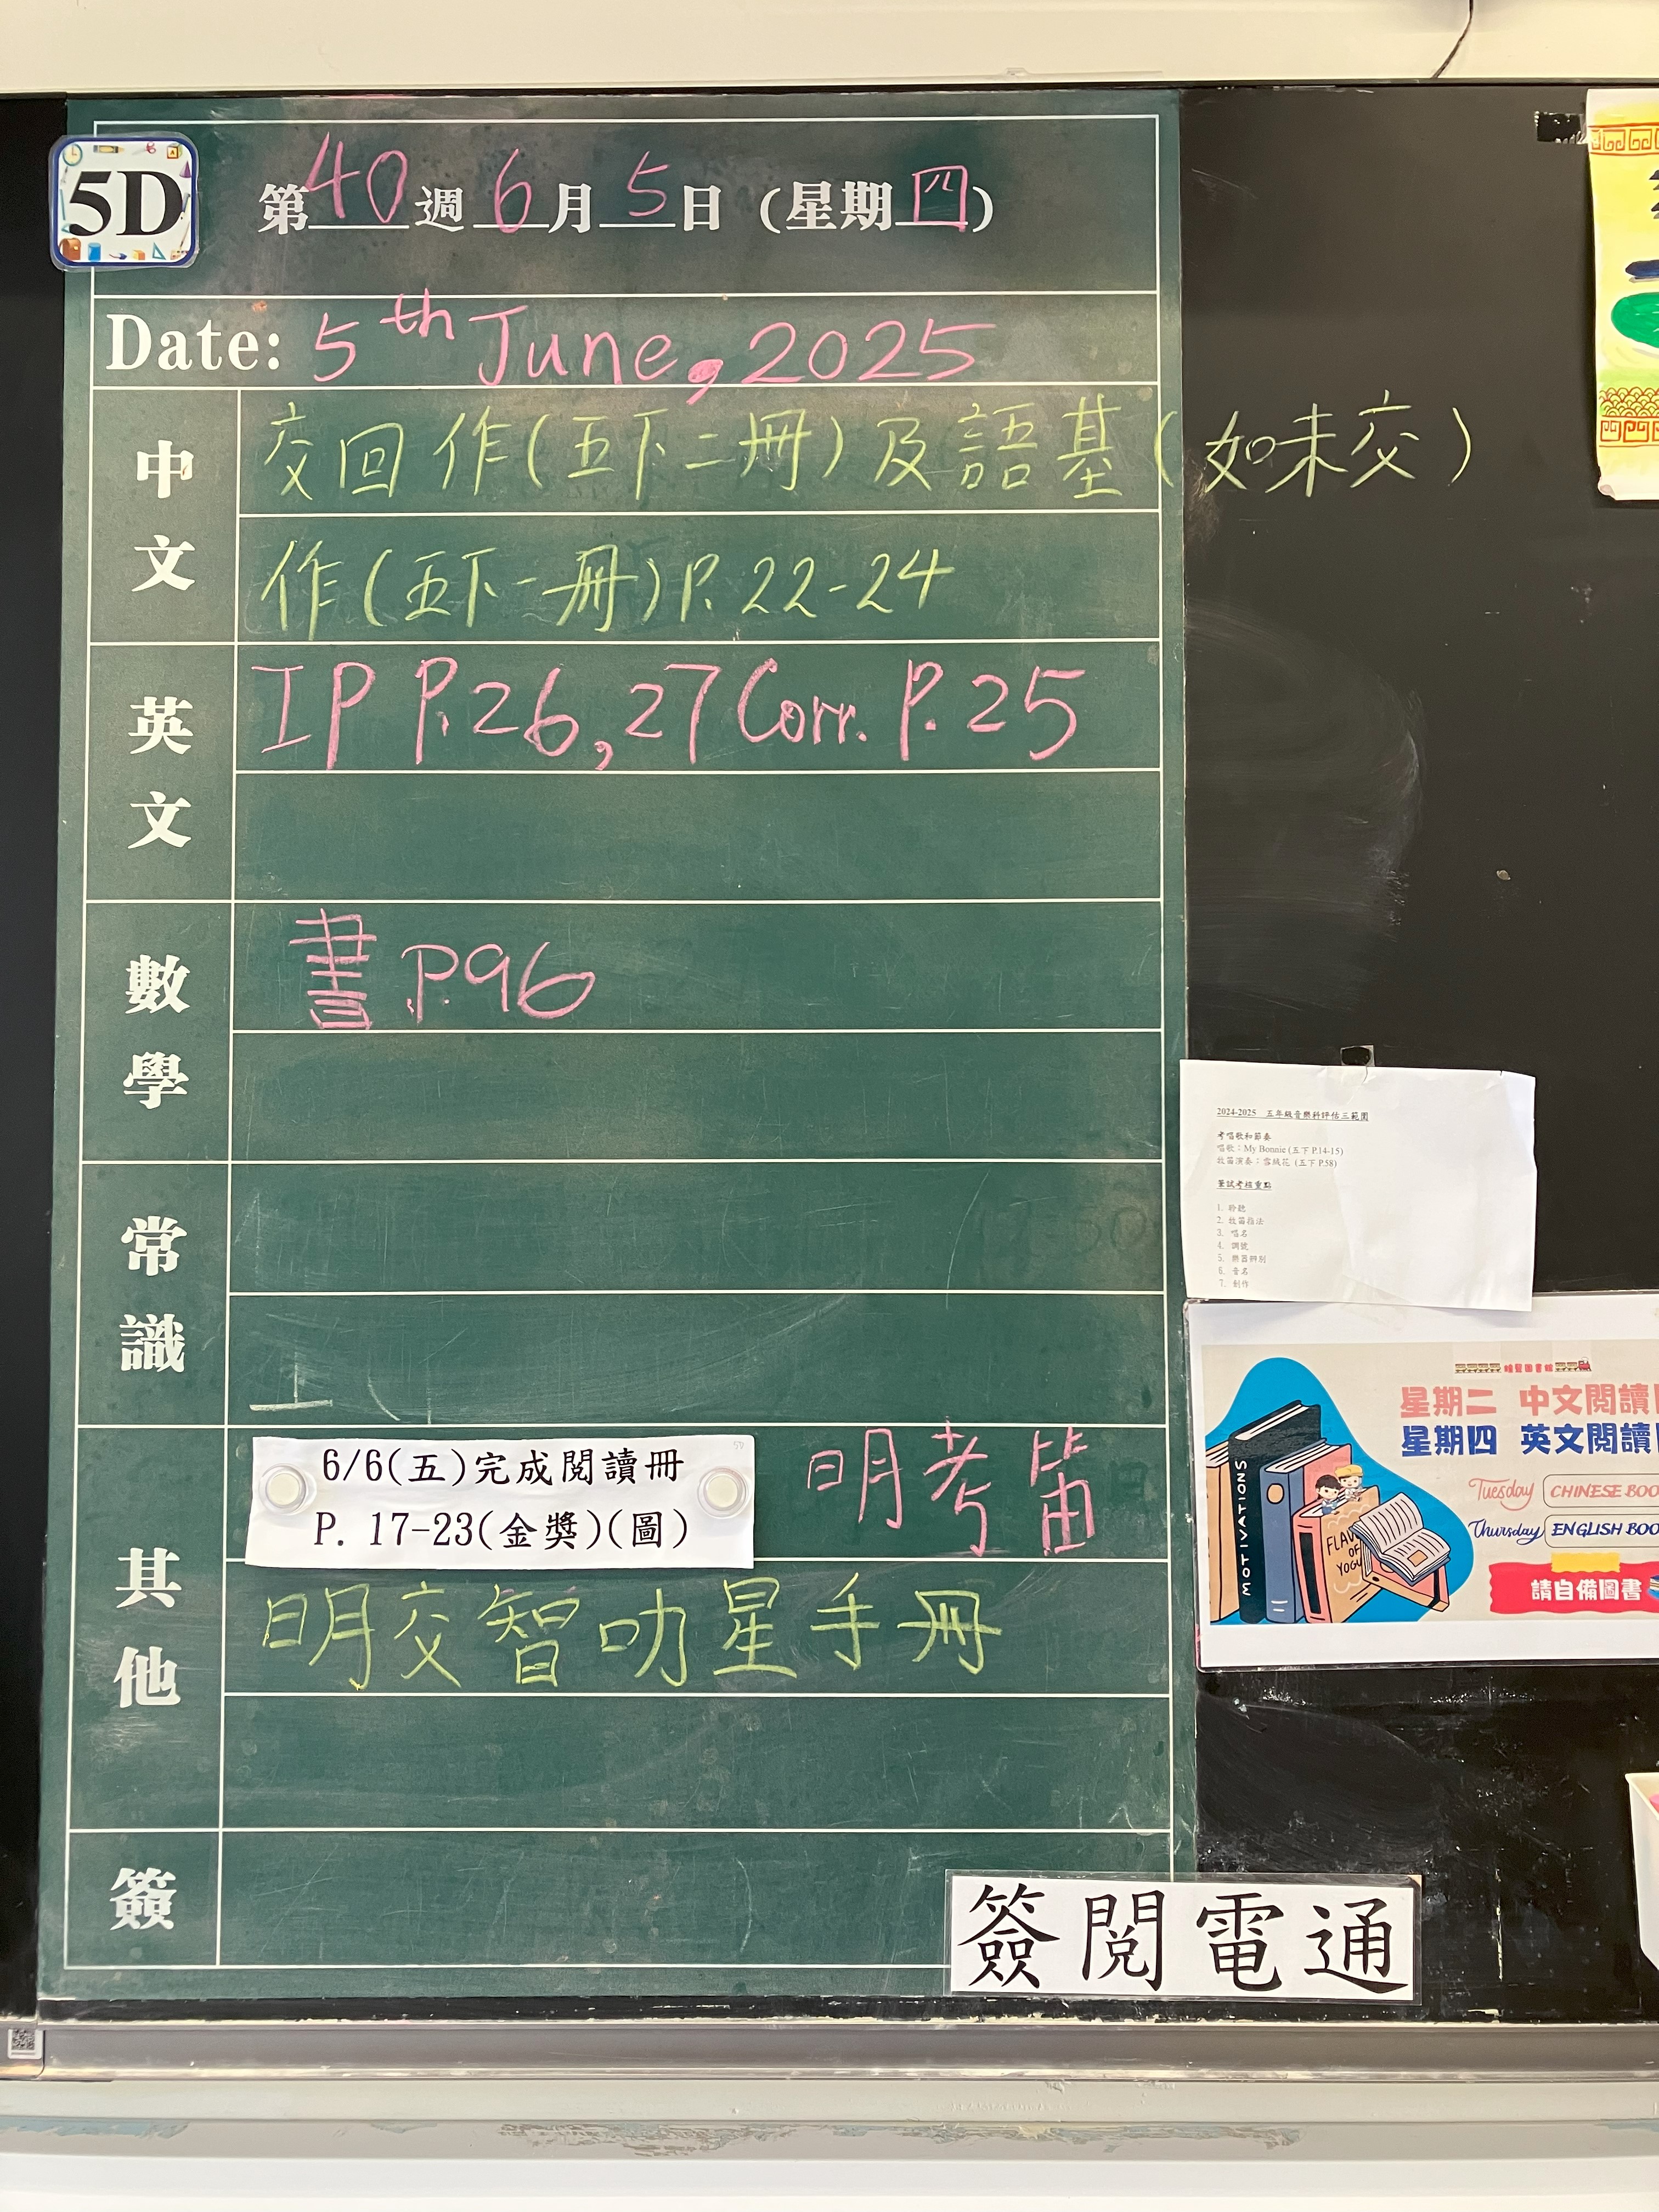 5D
第40週6月5日(星期四)
Date: 5th June, 2025
中文
交回作(五下二冊)及語基(如未交)
作(五下一冊)P.22-24
英文
IP P.26,27 Corr. P.25
數學
書 P.96
常識
其他
6/6(五)完成閱讀冊
P. 17-23(金獎)(圖)
明考笛
明交智叻星手冊
簽
簽閱電通
2024-2025 五年級音樂科評估三範圍
考唱歌和節奏
唱歌：My Bonnie (五下 P.14-15)
牧笛演奏：雪絨花 (五下 P.58)
筆試考核重點
1. 聆聽
2. 牧笛指法
3. 唱名
4. 調號
5. 樂器辨別
6. 音名
7. 創作
星期二 中文閱讀
星期四 英文閱讀
Tuesday CHINESE BOO
Thursday ENGLISH BOO
請自備圖書
MOTIVATIONS
FLAV
OF
YOGU